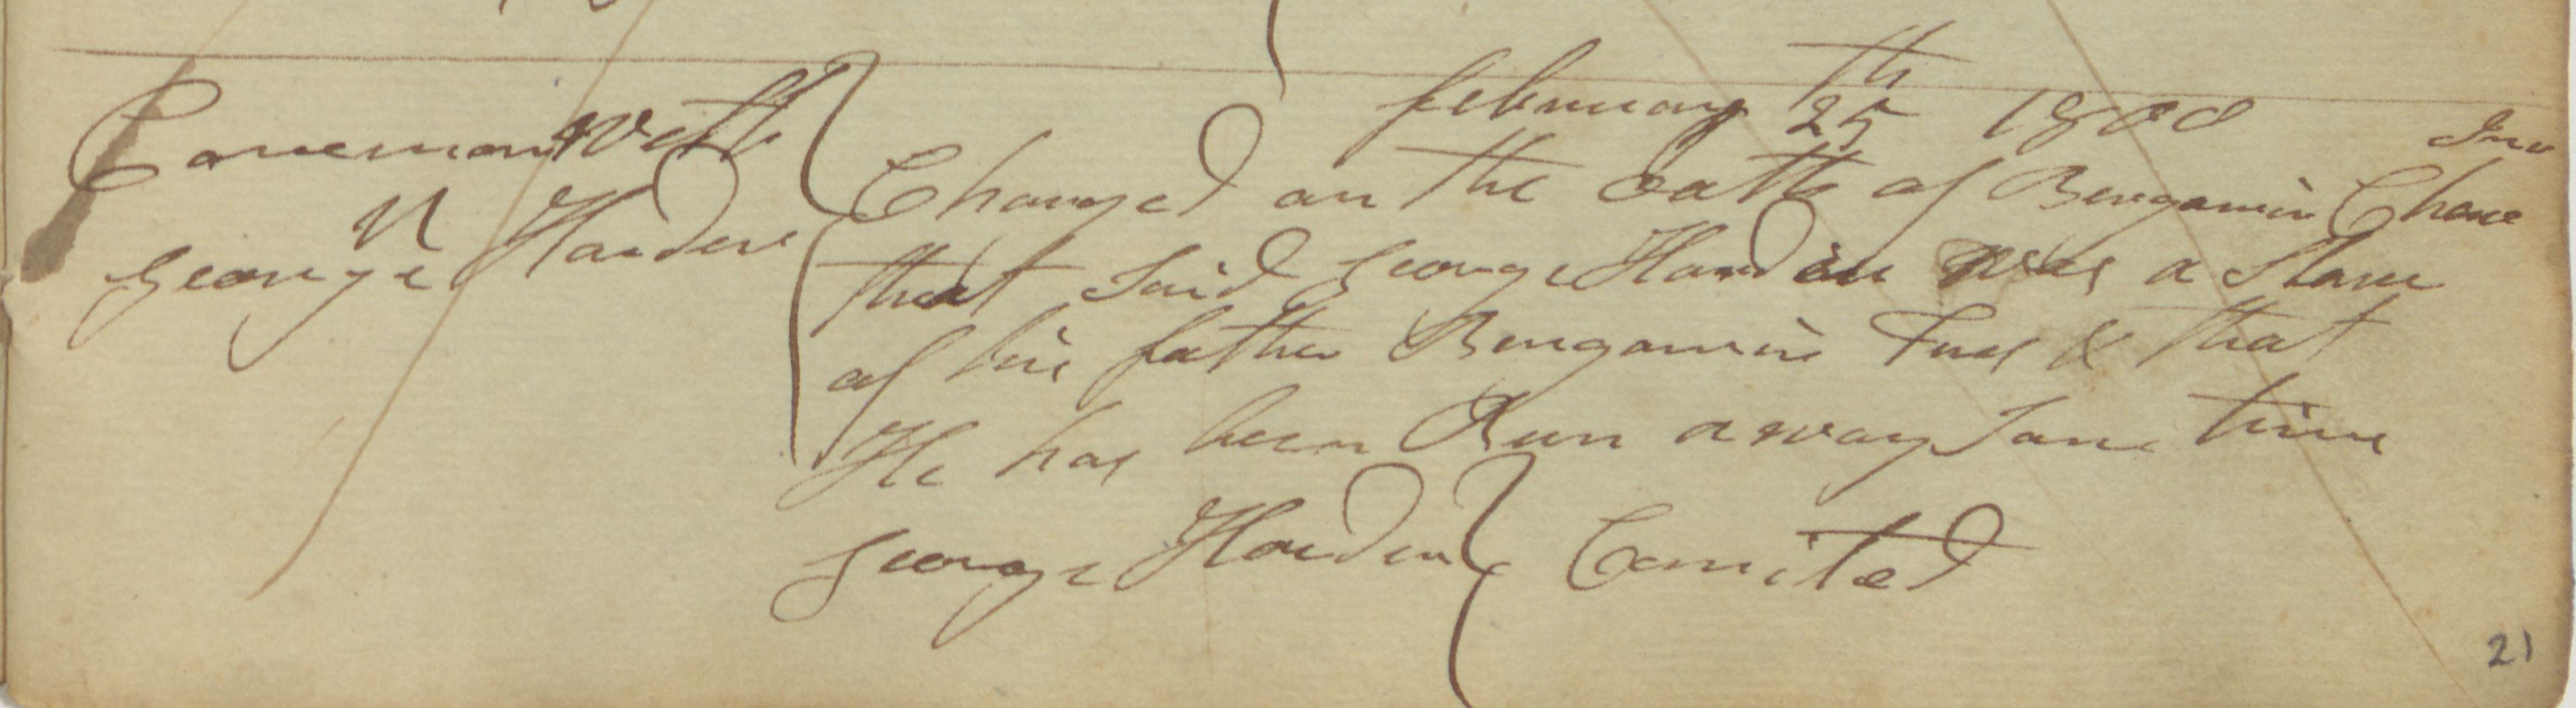 february 25th 1800
Commonwelth
V
George Harden
Charged on the Oath of Bengamin Chace Jnr
that Said George Harden was a Slave
of his father Bengamin &amp; that
He has been Run away Some time
George Harden Comited
21